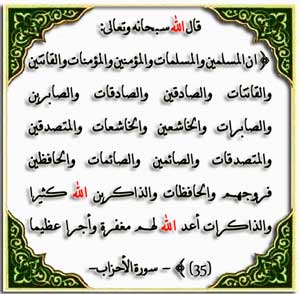 قال الله سبحانه وتعالى:
﴿ ان المسلمين والمسلمات والمؤمنين والمؤمنات والقانتين
والقانتات والصادقين والصادقات والصابرين
والصابرات والخاشعين والخاشعات والمتصدقين
والمتصدقات والصائمين والصائمات والحافظين
فروجهم والحافظات والذاكرين الله كثيرا
والذاكرات أعد الله لهم مغفرة وأجرا عظيما
(35) ﴾ – سورة الأحزاب–